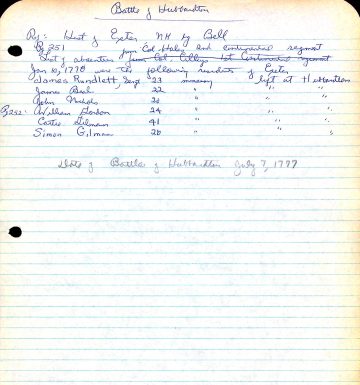 Battle of Hubbardton
Ref: Hist of Exeter NH by Bell
Pg 251 from Col. Hale's 2nd continental regiment
List of absentees from Col. Cilley's 1st Continental regiment
Jan 10, 1778 were the following residents of Exeter
James Rundlett, Sergt 23 left at Hubbardton
James Beal 22 " "
John 20 " "
Pg 252: William 24 " "
Gilman 41 " "
Simon Gilman 20 " "
Date of Battle of Hubbardton July 7, 1777